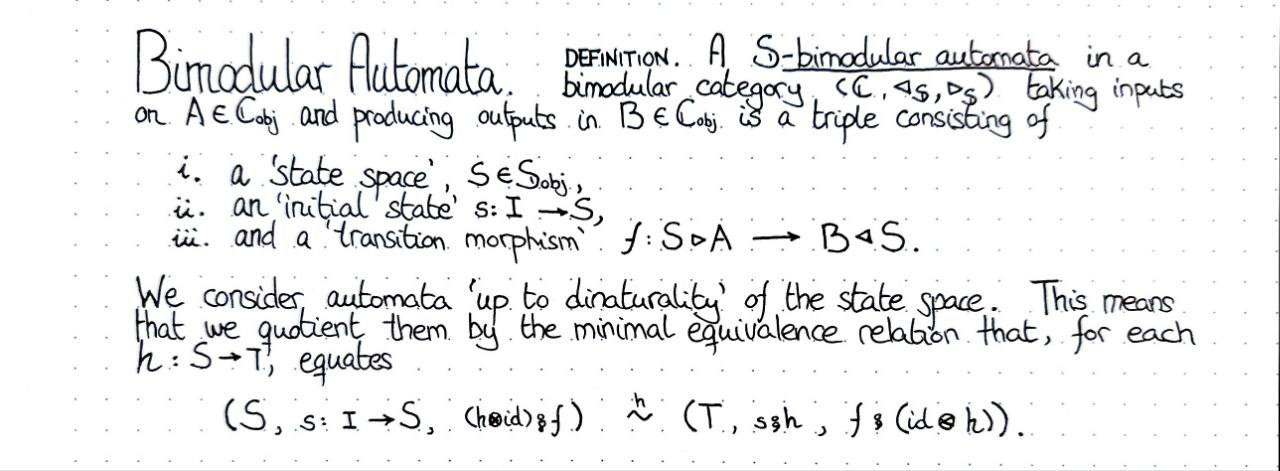 Bimodular Automata. DEFINITION. A S-bimodular automata in a
bimodular category (ℂ, ◁s, ▷s) taking inputs
on A ∈ ℂobj and producing outputs in B ∈ ℂobj is a triple consisting of
i. a 'state space', S ∈ Sobj,
ii. an 'initial state' s: I → S,
iii. and a 'transition morphism' f: S ▷ A ⟶ B ◁ S.
We consider automata 'up to dinaturality' of the state space. This means
that we quotient them by the minimal equivalence relation that, for each
h: S → T, equates
(S, s: I → S, (h⊗id)⨾f) ~ʰ (T, s⨾h, f⨾(id⊗h)).